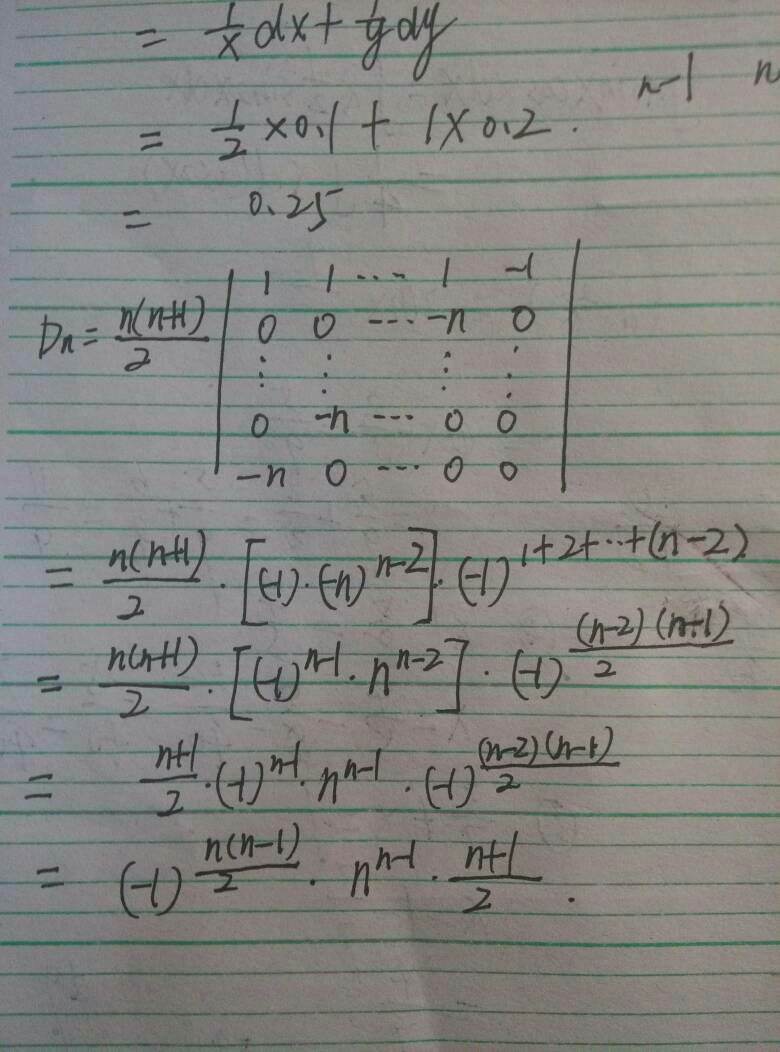 = 1/x dx + 1/y dy
n-1 n
= 1/2 × 0.1 + 1 × 0.2.
= 0.25
Dn = n(n+1)/2 | 1 1 ⋯ 1 -1 |
0 0 ⋯ -n 0
⋮ ⋮ ⋮ ⋮
0 -n ⋯ 0 0
-n 0 ⋯ 0 0
= n(n+1)/2 · [(-1)·(-n)^(n-2)]·(-1)^(1+2+⋯+(n-2))
= n(n+1)/2 · [(-1)^(n-1) · n^(n-2)] · (-1)^((n-2)(n+1)/2)
= n+1/2 · (-1)^(n-1) · n^(n-1) · (-1)^((n-2)(n-1)/2)
= (-1)^(n(n-1)/2) · n^(n-1) · n+1/2 .